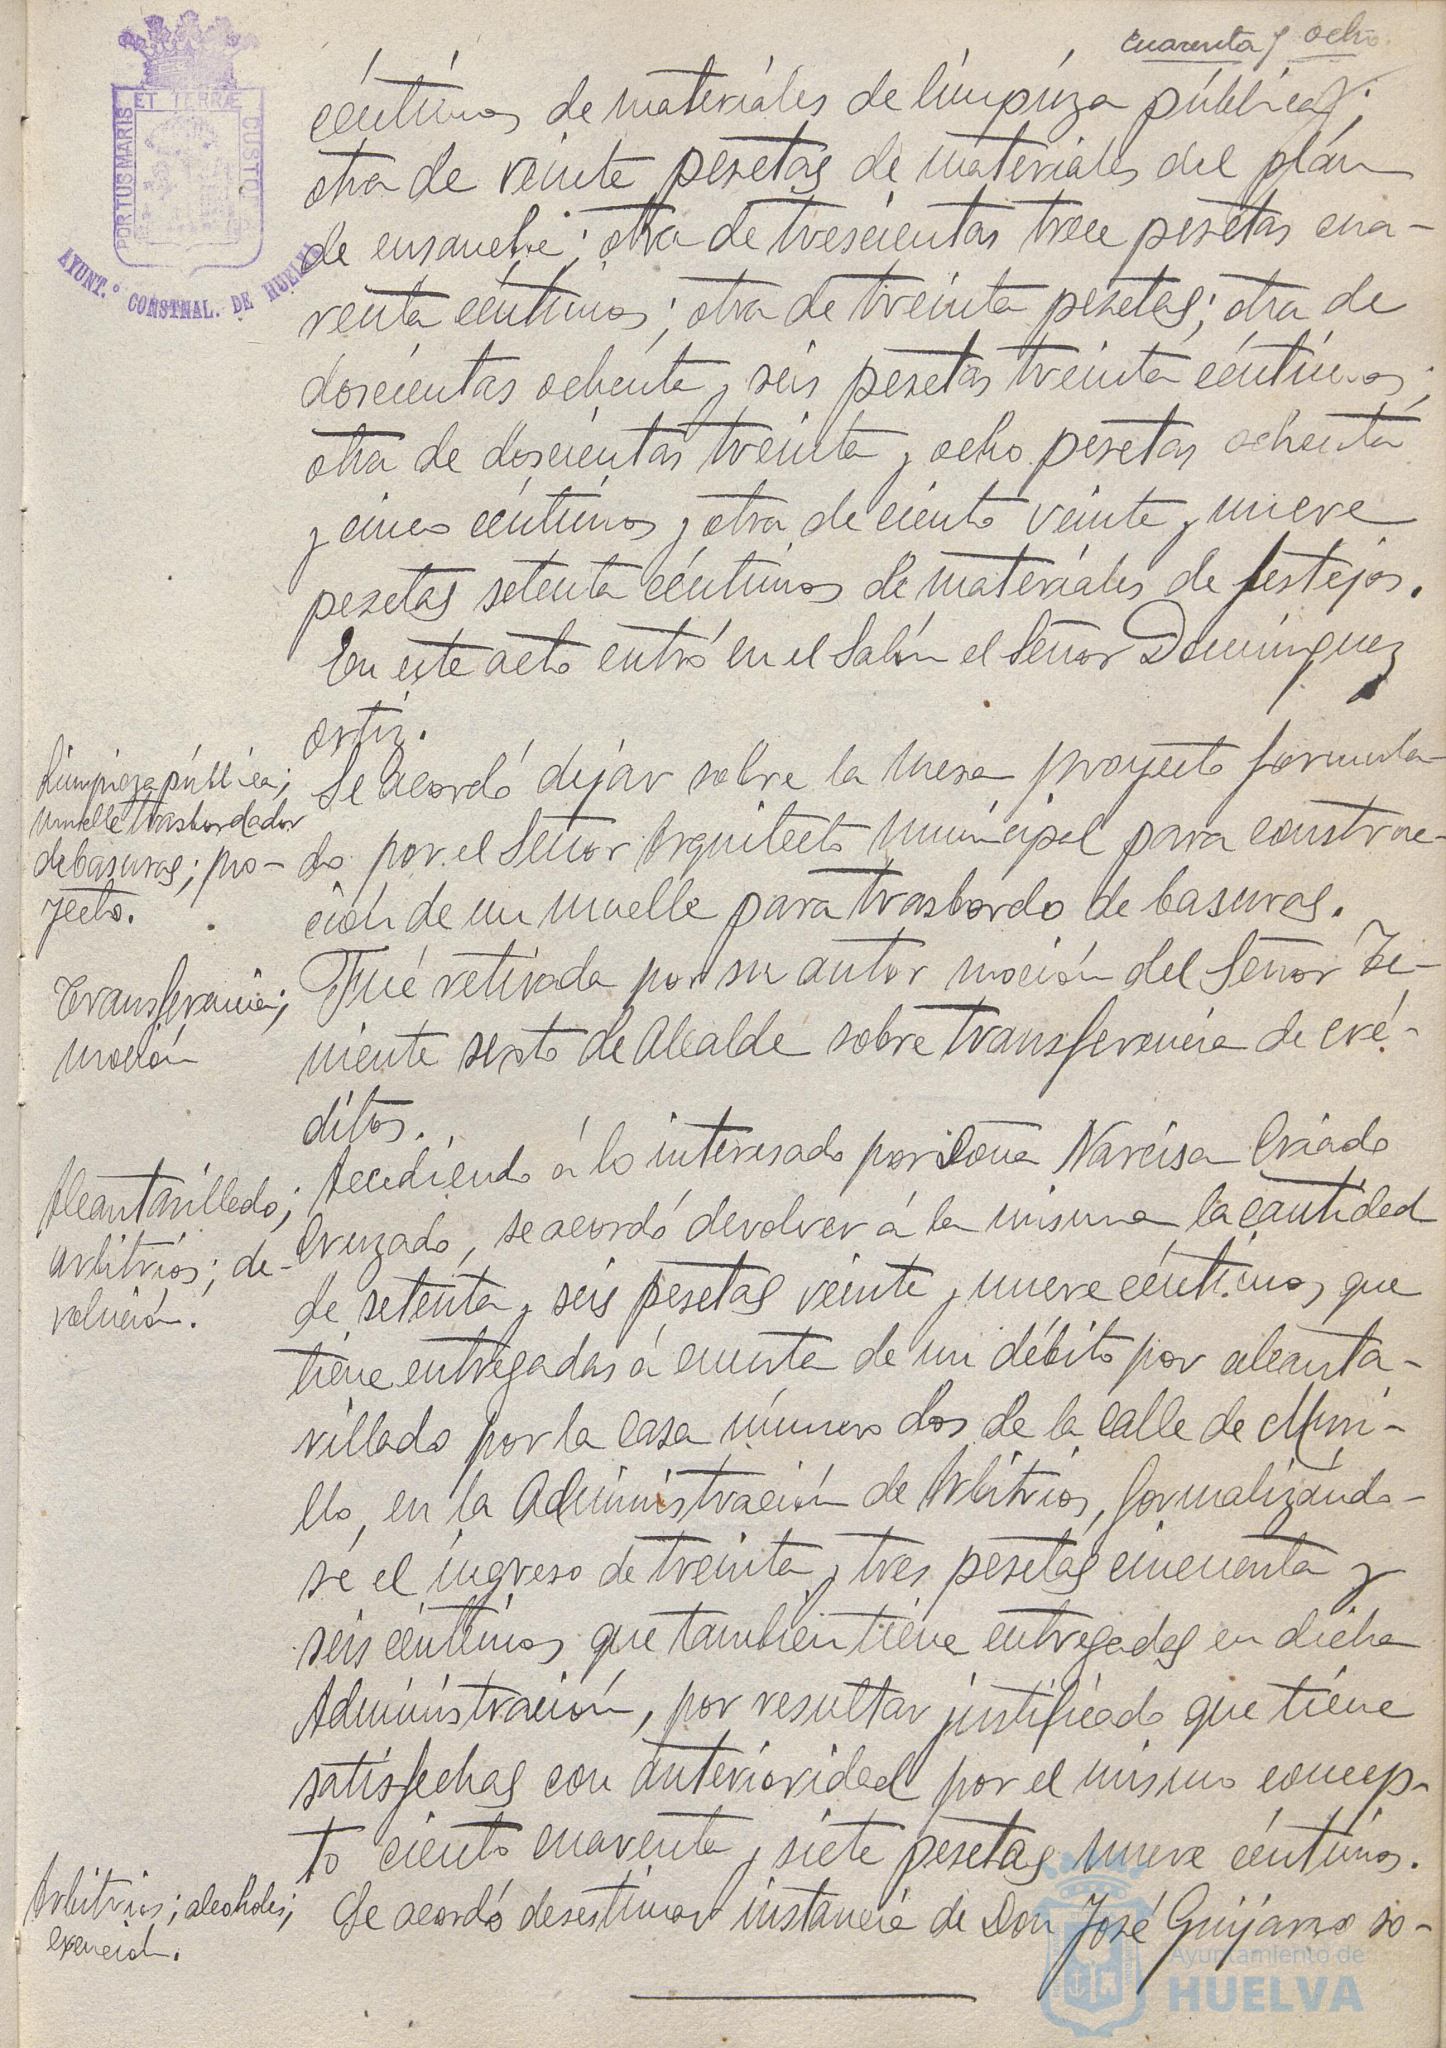 cuarenta y ocho
PORTUS MARIS ET TERRÆ CUSTO
AYUNT.º CONSTNAL. DE HUELVA
céntimos de materiales de limpieza pública;
otra de veinte pesetas de materiales del plan
de ensanche; otra de trescientas trece pesetas cua-
renta céntimos; otra de treinta pesetas; otra de
doscientas ochenta y seis pesetas treinta céntimos;
otra de doscientas treinta y ocho pesetas ochenta
y cinco céntimos y otra de ciento veinte y nueve
pesetas setenta céntimos de materiales de festejos.
En este acto entró en el Salón el Señor Domínguez
Ortiz.
Limpieza pública;
muelle trasbordador
de basuras; pro-
yecto.
Se acordó dejar sobre la mesa proyecto formula-
do por el Señor Arquitecto municipal para construc-
ción de un muelle para trasbordo de basuras.
Transferencia;
moción
Fué retirada por su autor moción del Señor Te-
niente sexto de Alcalde sobre transferencia de cré-
ditos.
Alcantarillado;
arbitrios; de-
volución.
Accediendo á lo interesado por Doña Narcisa Criado
Cruzado, se acordó devolver á la misma la cantidad
de setenta y seis pesetas veinte y nueve céntimos que
tiene entregadas á cuenta de un débito por alcanta-
rillado por la casa número dos de la calle de Muri-
llo, en la Administración de Arbitrios, formalizándo-
se el ingreso de treinta y tres pesetas cincuenta y
seis céntimos que tambien tiene entregadas en dicha
Administración, por resultar justificado que tiene
satisfechas con anterioridad por el mismo concep-
to ciento cuarenta y siete pesetas nueve céntimos.
Arbitrios; alcoholes;
exención.
Se acordó desestimar instancia de Don José Guijarro so-
Ayuntamiento de
HUELVA